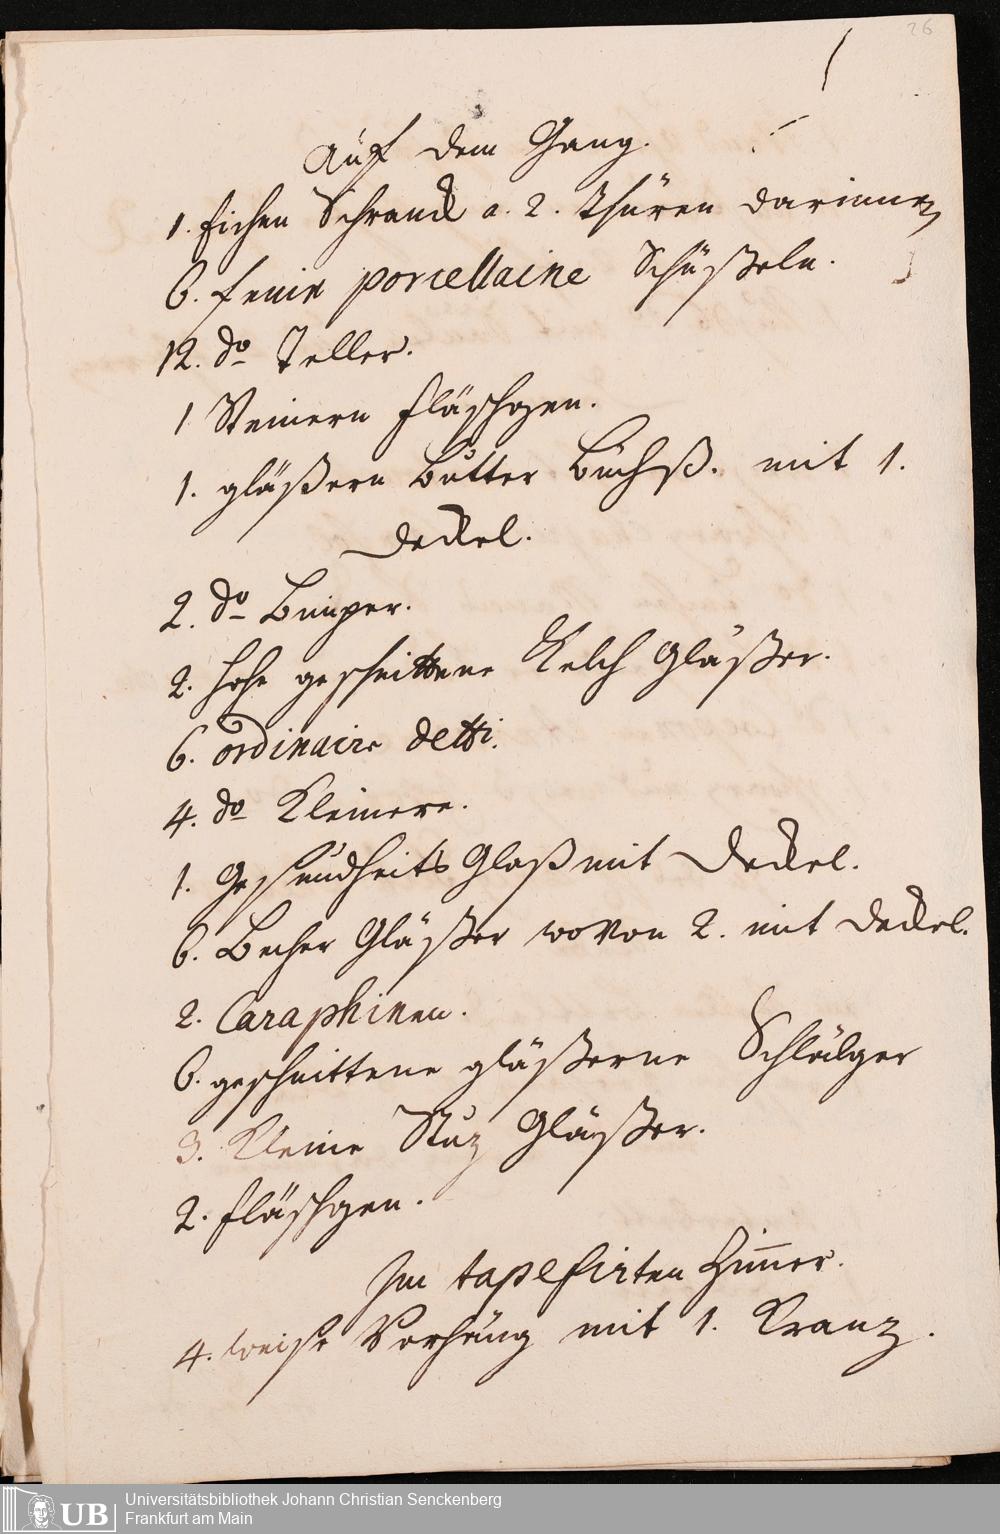 26
Auf dem Gang.
1. Eichen Schranck a. 2. Thüren darinnen
6. feine porcellaine Schüßeln.
12. do Teller.
1 Steinern Fläschgen.
1. gläßern Butter Büchß. mit 1.
Deckel.
2. do Bumper.
2. hohe geschnittene Kelch Gläßer.
6. ordinaire detti.
4. do Kleinere.
1. Gesundheits Glaß mit Deckel.
6. Becher Gläßer wovon 2. mit Deckel.
2. Caraphinen.
6. geschnittene gläßerne
3. Kleine Stuz Gläßer.
2. Fläschgen.
Im tapesirten Zimer.
4. weise Vorhäng mit 1. Kranz.
UB
Universitätsbibliothek Johann Christian Senckenberg
Frankfurt am Main